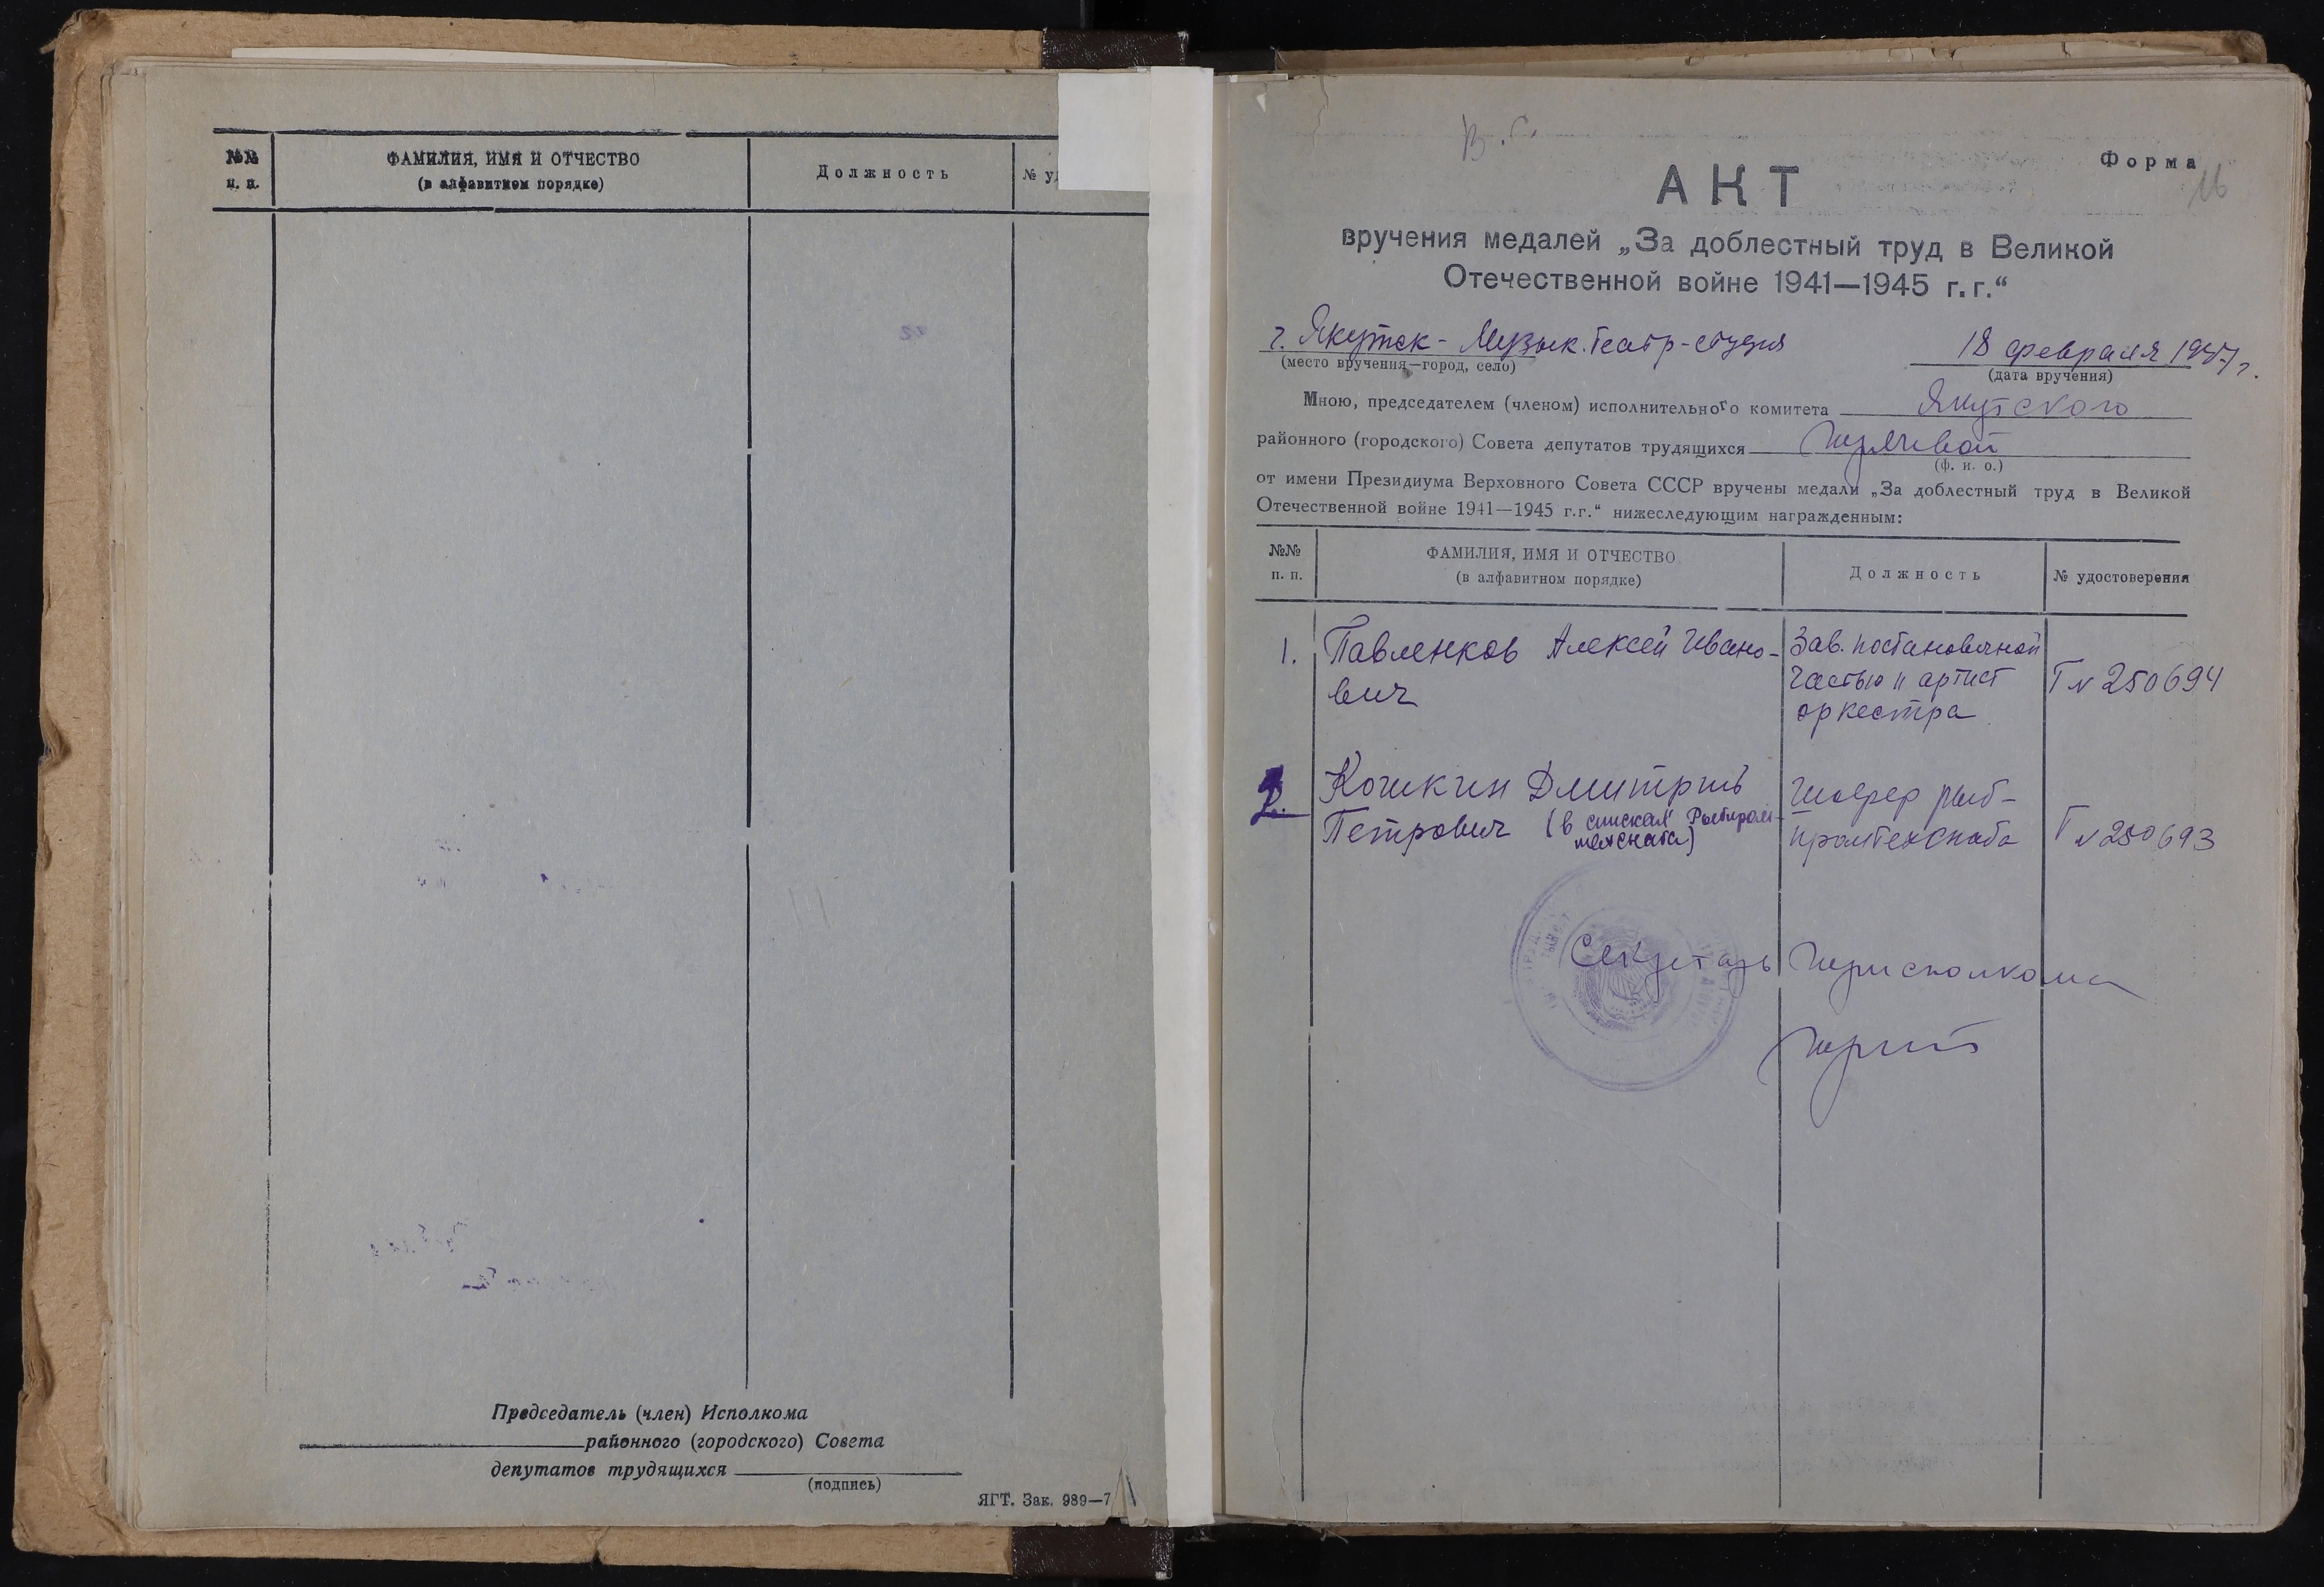 №№
п. п.
ФАМИЛИЯ, ИМЯ И ОТЧЕСТВО
(в алфавитном порядке)
Должность
№ у
Председатель (член) Исполкома
районного (городского) Совета
депутатов трудящихся
(подпись)
ЯГТ. Зак. 989—7
Форма
16
АКТ
вручения медалей „За доблестный труд в Великой
Отечественной войне 1941—1945 г.г.“
г. Якутск - Музык. театр-студия
18 февраля 1947 г.
(место вручения—город, село)
(дата вручения)
Мною, председателем (членом) исполнительного комитета Якутского
районного (городского) Совета депутатов трудящихся
(ф. и. о.)
от имени Президиума Верховного Совета СССР вручены медали „За доблестный труд в Великой
Отечественной войне 1941—1945 г.г.“ нижеследующим награжденным:
№№
п. п.
ФАМИЛИЯ, ИМЯ И ОТЧЕСТВО
(в алфавитном порядке)
Должность
№ удостоверения
1. Павленков Алексей Ивано-
вич
Зав. постановочной
частью и артист
оркестра
Т № 250694
2. Кошкин Дмитрий
Петрович (в списках Рыбпром-
техснаба)
Шофер рыб-
промтехснаба
Т № 250693
Секретарь Горисполкома